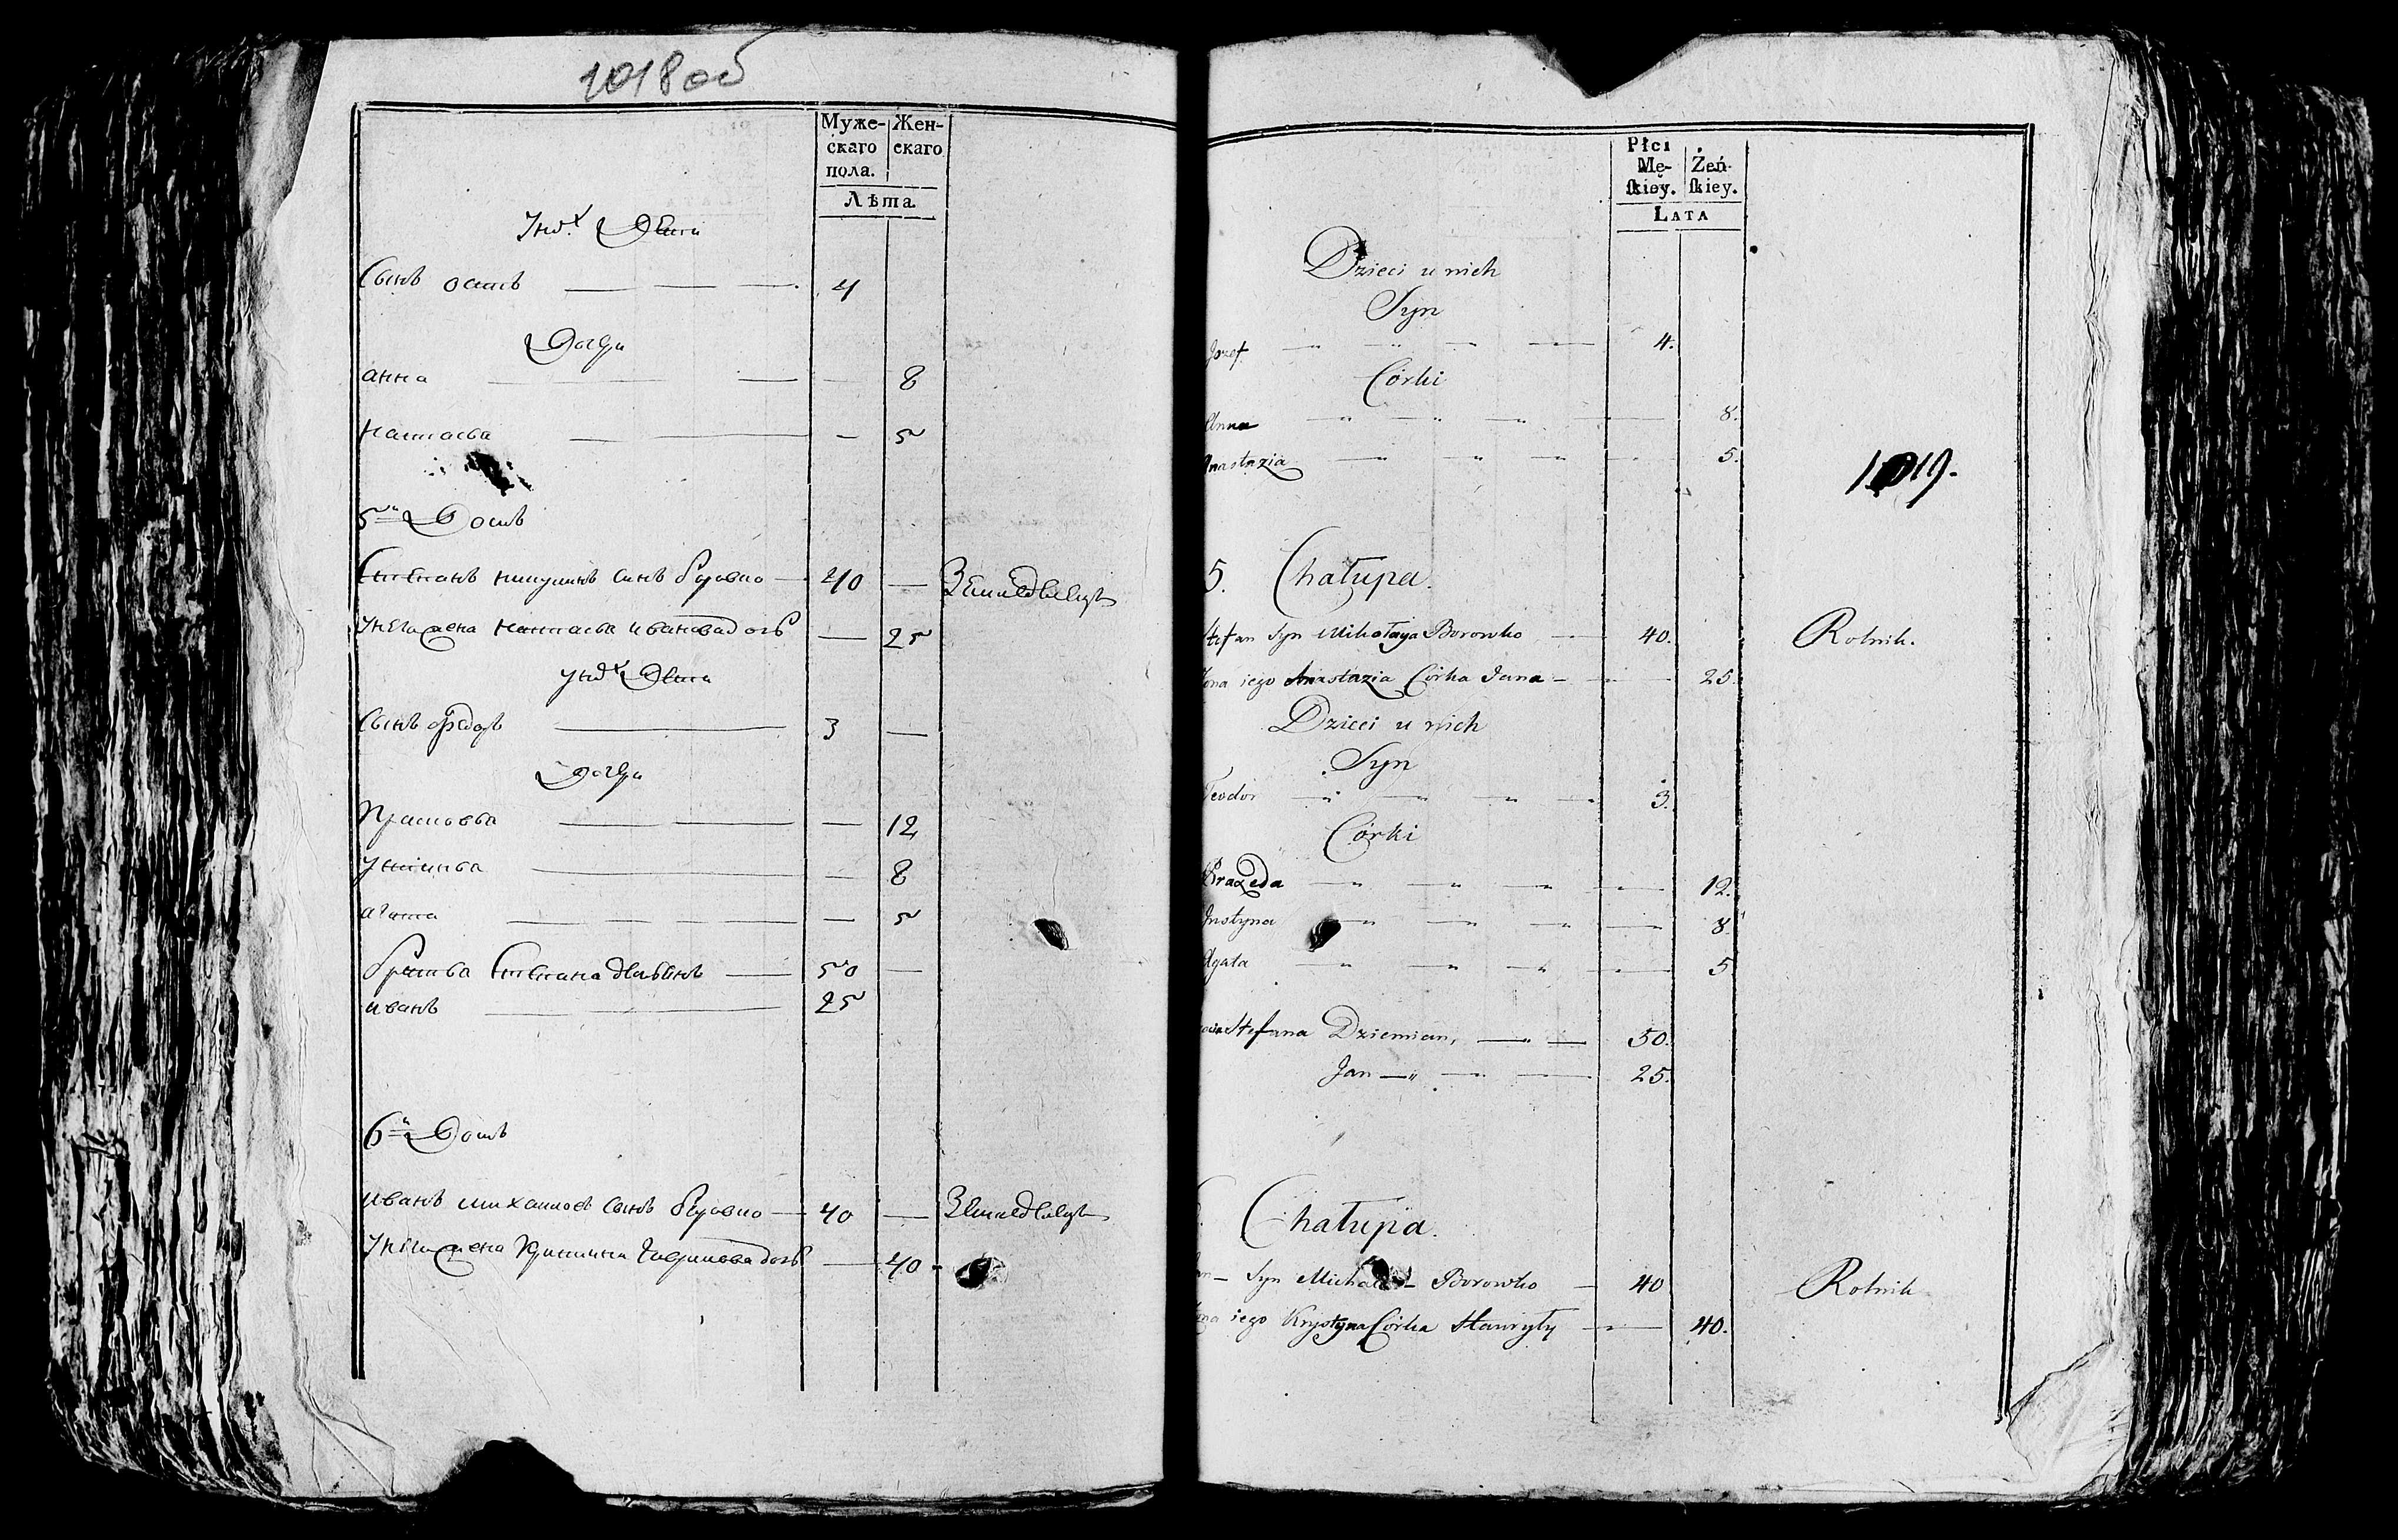 1018 об
Муже- Жен-
скаго скаго
пола.
Лѣта
У нихъ Дети
Сынъ осипъ 4
Дочери
анна — 8
настасья — 5
5й Домъ
Степанъ никулинъ сынъ боровко 40 — Земледелецъ
У него жена настасья иванова дочь — 25
у них Дети
Сынъ федоръ 3 —
Дочери
Прасковья — 12
Устинья — 8
агата — 5
братья Степана демьянъ 50 —
иванъ 25
6й Домъ
иванъ михаиловъ сынъ боровко 40 — Земледелецъ
У него жена Кристина гаврилова дочь — 40
Płci
Mę- Żeń-
ſkiey. ſkiey.
LATA
Dzieci u nich
Syn
Jozef 4.
Córki
Anna 8.
Anastazia 5.
1019.
5. Chałupa.
Stefan Syn Mikołaya Borowko 40. Rolnik.
Żona iego Anastazia Córka Jana 25.
Dzieci u nich
Syn
Teodor 3.
Córki
Praxeda 12.
Justyna 8.
Agata 5
Stefana Dziemian, 50.
Jan 25.
Chałupa.
Syn Michała Borowko 40 Rolnik
iego Krystyna Córka Hawryły 40.